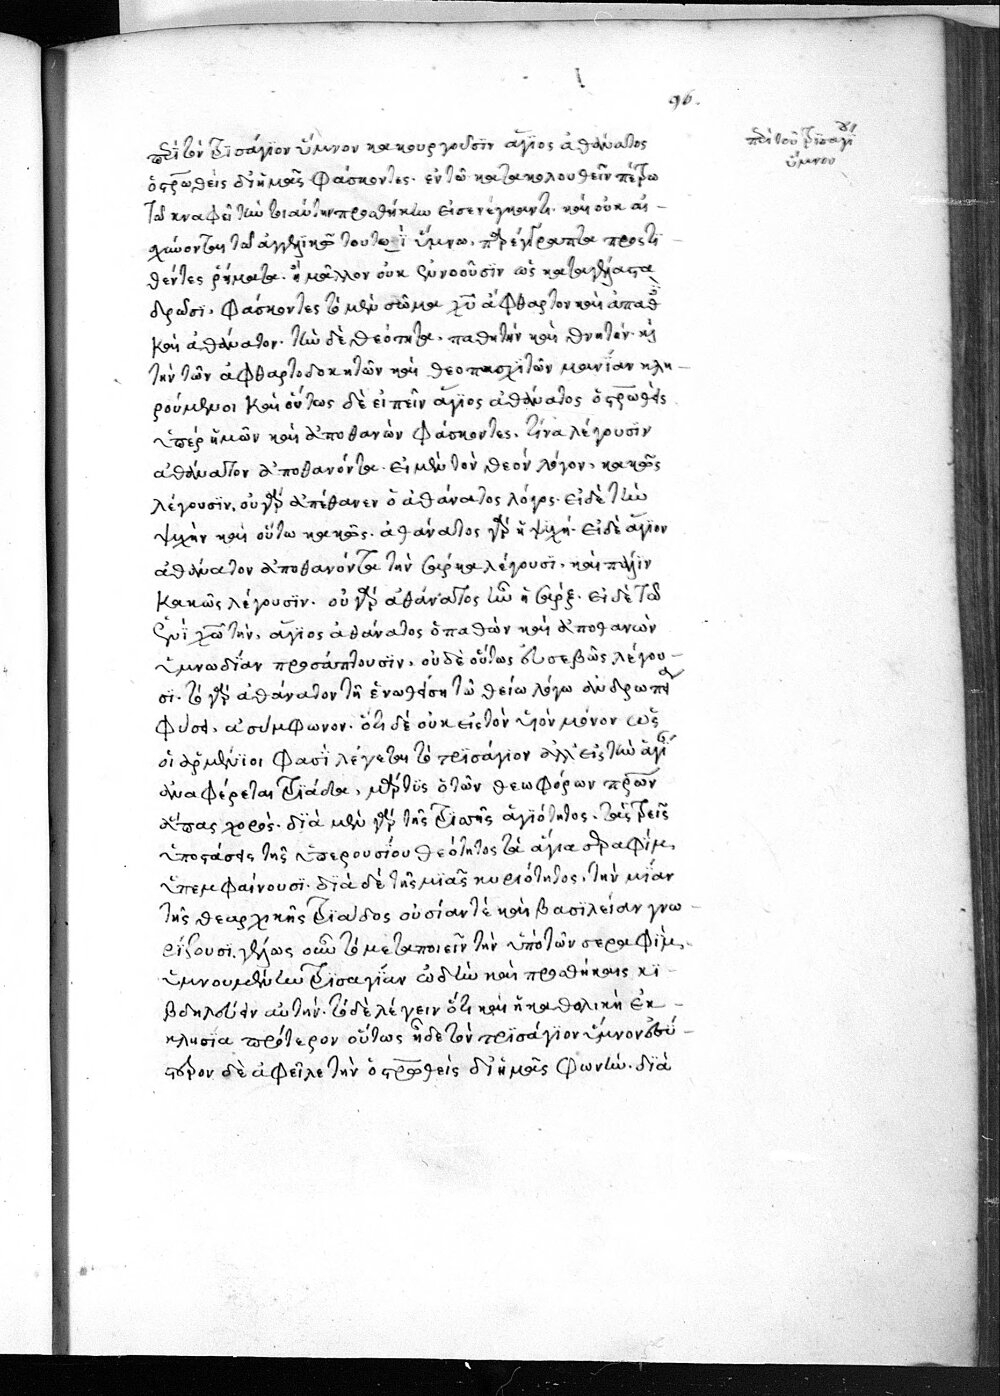 96.
περὶ τοῦ τρισαγίου
ὕμνου
περὶ τὸν τρισάγιον ὕμνον κακουργοῦσϊν ἅγϊος ἀθάνατος
ὁ σταυρωθεὶς δι' ἡμᾶς φάσκοντες. ἐν τῶ κατακολουθεῖν πέτρω
τῶ κναφεῖ τῶ τὴν τοιαύτην προσθήκην εἰσενέγκαντι. καὶ οὐκ αἰ-
σχύνονται τῶ ἀγγελικῶ τούτω ὕμνω, παρέγγραπτα προστι-
θέντες ῥήματα. ἢ μᾶλλον οὐκ ἐννοοῦσϊν ὡς καταγέλαστα
δρῶσϊ, φάσκοντες τὸ μὲν σῶμα χυ ἄφθαρτον καὶ ἀπαθὲς
καὶ ἀθάνατον. τὴν δὲ θεότητα, παθητὴν καὶ θνητήν. καὶ
τὴν τῶν ἀφθαρτοδοκητῶν καὶ θεοπασχϊτῶν μανίαν κλη-
ρούμενοι καὶ οὕτως δὲ εἰπεῖν ἅγϊος ἀθάνατος ὁ σταυρωθεὶς
ὑπὲρ ἡμῶν καὶ ἀποθανὼν φάσκοντες, τίνα λέγουσϊν
ἀθάνατον ἀποθανόντα. εἰ μὲν τὸν θεὸν λόγον, κακῶς
λέγουσϊν, οὐ γὰρ ἀπέθανεν ὁ ἀθάνατος λόγος. εἰ δὲ τὴν
ψυχὴν καὶ οὕτω κακῶς. ἀθάνατος γὰρ ἡ ψυχή. εἰ δὲ ἅγϊον
ἀθάνατον ἀποθανόντα τὴν σάρκα λέγουσϊ, καὶ πάλιν
κακῶς λέγουσϊν. οὐ γὰρ ἀθάνατος ἦν ἡ σάρξ. εἰ δὲ τῶ
ἑνὶ χω τὴν, ἅγϊος ἀθάνατος ὁ παθὼν καὶ ἀποθανὼν
ὑμνωδίαν προσάπτουσϊν, οὐδὲ οὕτως εὐσεβῶς λέγου-
σϊ. τὸ γὰρ ἀθάνατον τῆ ἑνωθείση τῶ θείω λόγω ἀνδρωπεία
φύσει, ἀσύμφωνον. ὅτι δὲ οὐκ εἰς τὸν υἱὸν μόνον ὡς
οἱ ἀρμένϊοι φασὶ λέγεται τὸ τρϊσάγϊον ἀλλ' εἰς τὴν ἁγίαν
ἀναφέρεται τριάδα, μάρτυς ὁ τῶν θεωφόρων πρων
ἅπας χορός. διὰ μὲν γὰρ τῆς τρίτης ἁγϊότητος, τὰς τρεῖς
ὑποστάσεις τῆς ὑπερουσίου θεότητος τὰ ἅγια σεραφίμ,
ὑπεμφαίνουσϊ. διὰ δὲ τῆς μϊᾶς κυριότητος, τὴν μίαν
τῆς θεαρχικῆς τριάδος οὐσίαν τὲ καὶ βασϊλείαν γνω-
ρίζουσϊ. γελίως οὖν τὸ μεταποιεῖν τὴν ὑπὸ τῶν σεραφὶμ,
ὑμνουμένην τρισαγίαν ὠδὴν καὶ προσθήκαις κϊ-
βδηλεύειν αὐτήν. τὸ δὲ λέγειν ὅτι καὶ ἡ καθολικὴ ἐκ-
κλησία πρότερον οὕτως ἦδε τὸν τρϊσάγϊον ὕμνον ὕ-
στερον δὲ ἀφεῖλε τὴν ὁ σταυρωθεὶς δι' ἡμᾶς φωνήν. διὰ